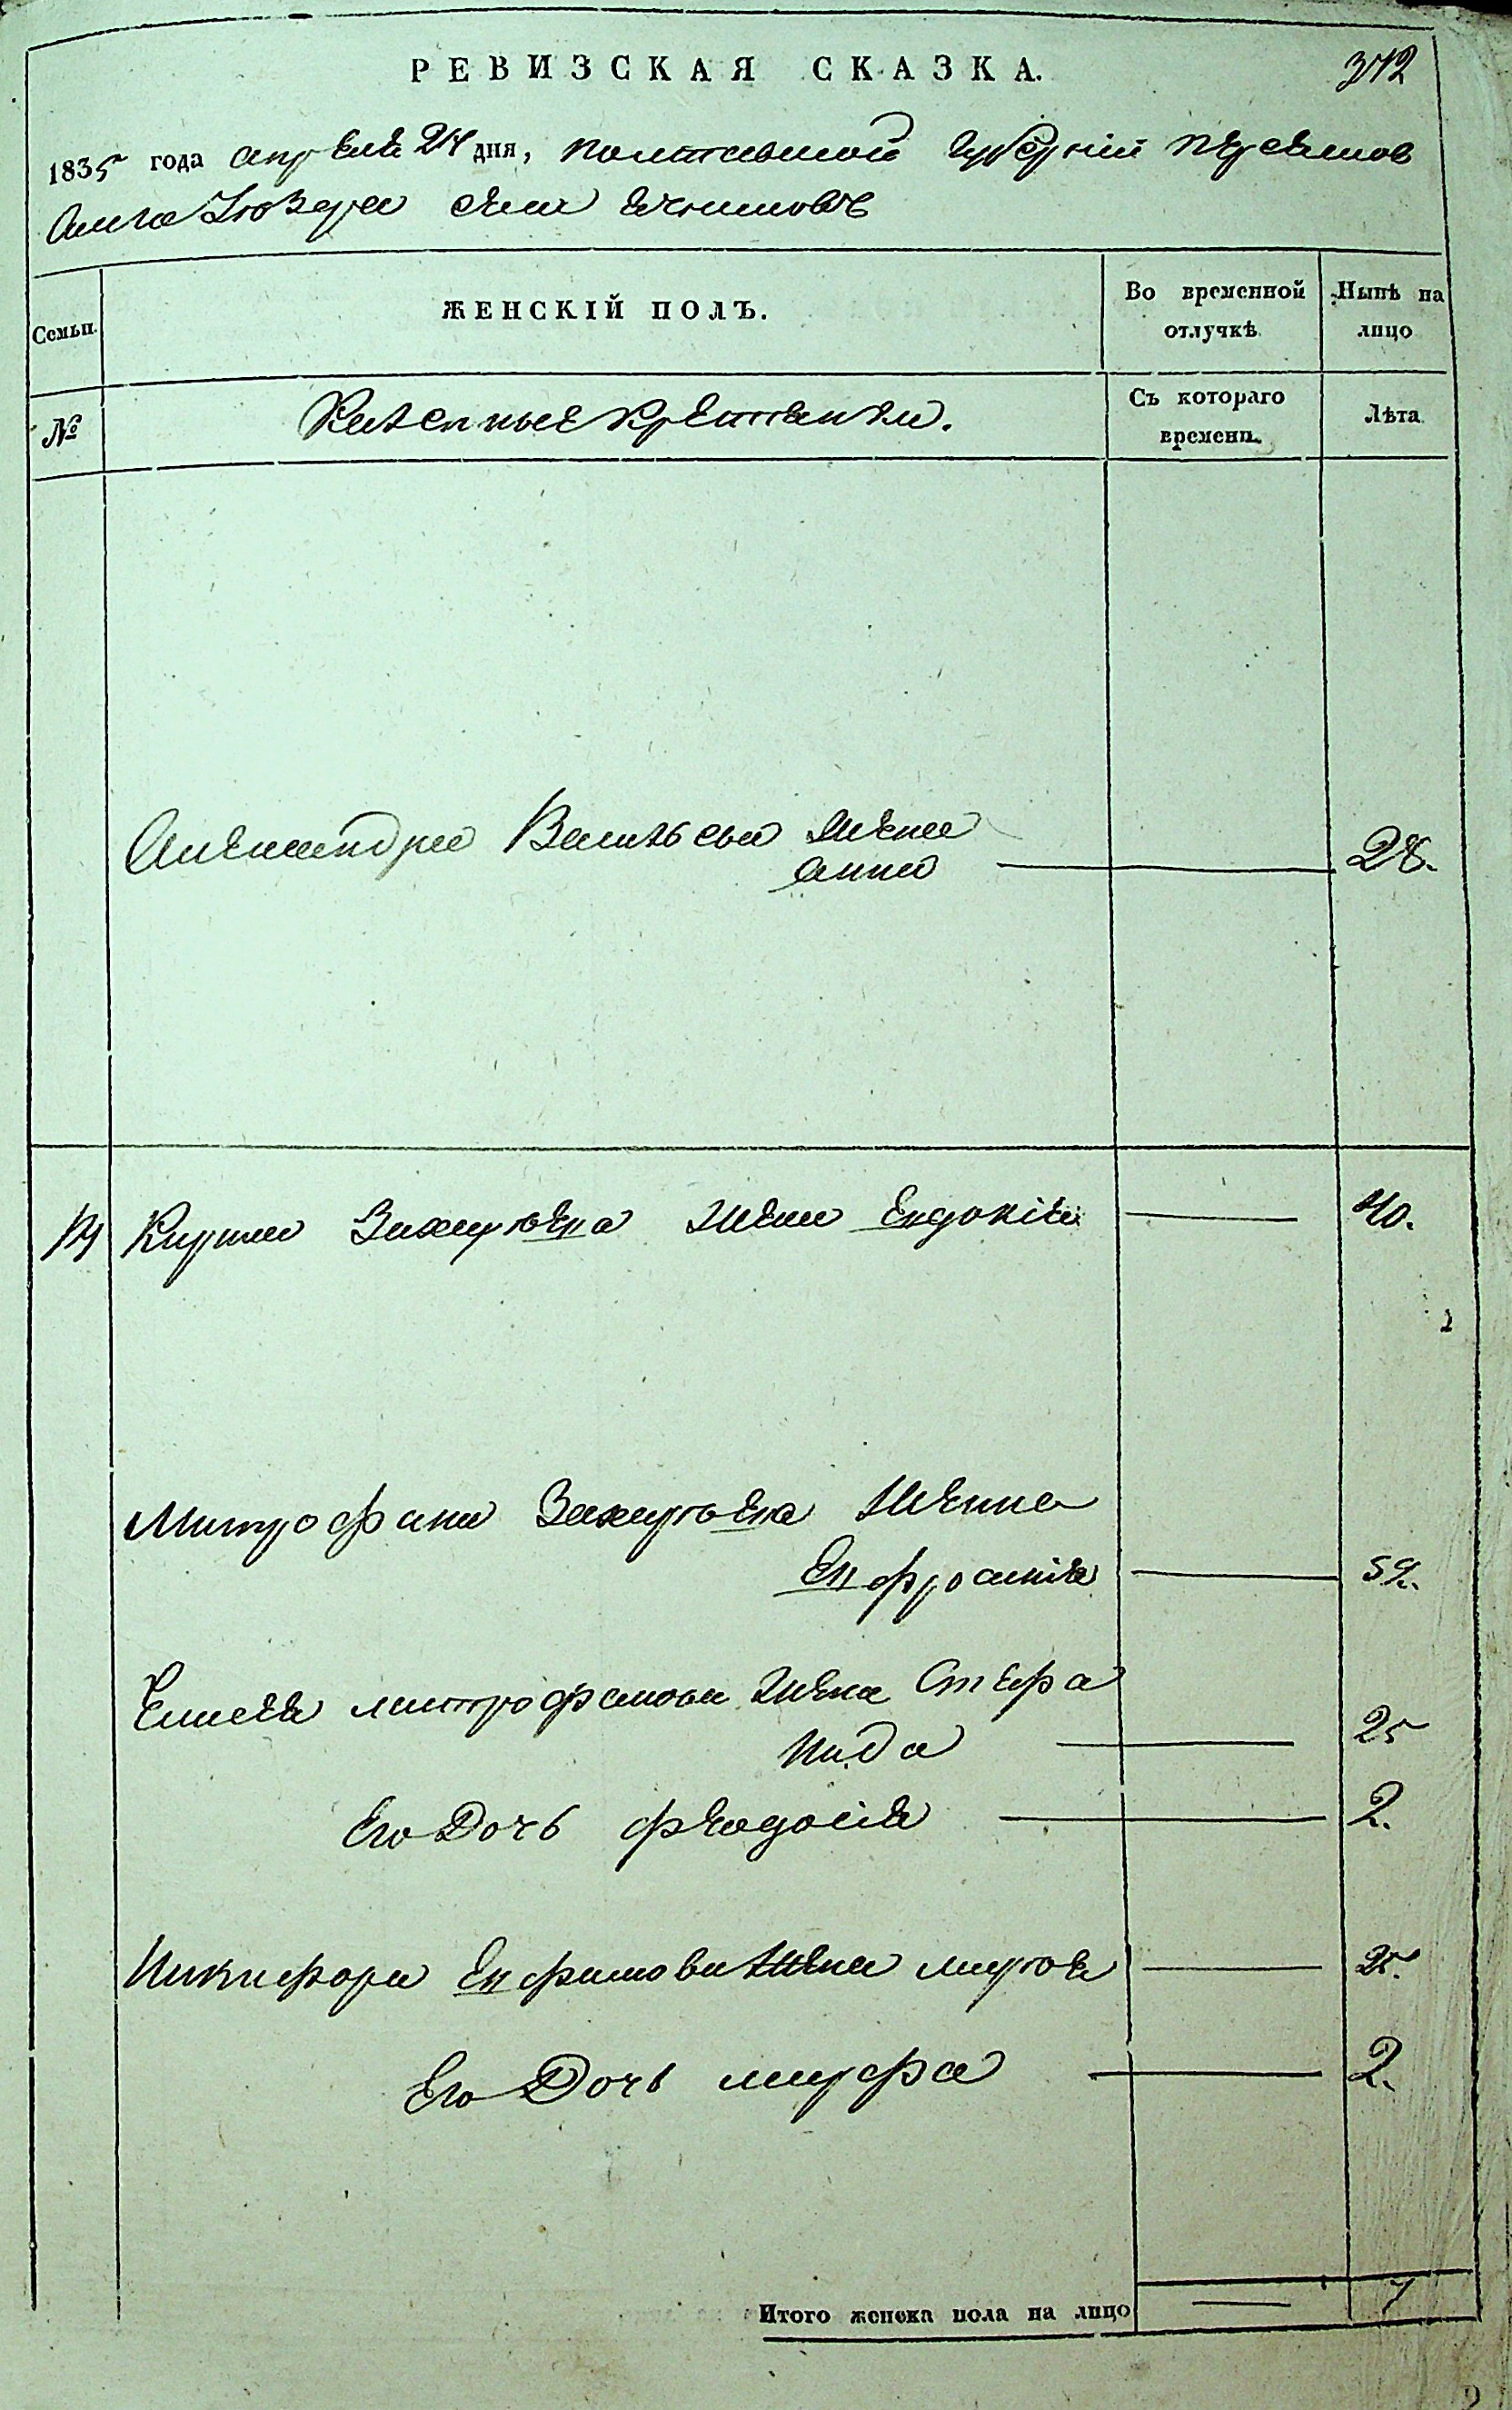 РЕВИЗСКАЯ СКАЗКА. 342
1835 года апреля 24 дня, Полтавской Губерніи Переяслов
скаго уезда села
Семьи. ЖЕНСКІЙ ПОЛЪ. Во временной отлучкѣ. Нынѣ на лицо
№ Казенные крестьяне. Съ котораго времени. Лѣта.
Александра Васильева жена
Анна 28.
14 Кирила Захарьева жена Евдокія 40.
Митрофана Захарьева жена
Евфросинія 52.
Елисея Митрофанова жена Стефа
нида 25
Его Дочь Феодосія 2.
Никифора Евфимова жена Марья 25.
Его Дочь Марфа 2.
Итого женска пола на лицо 7